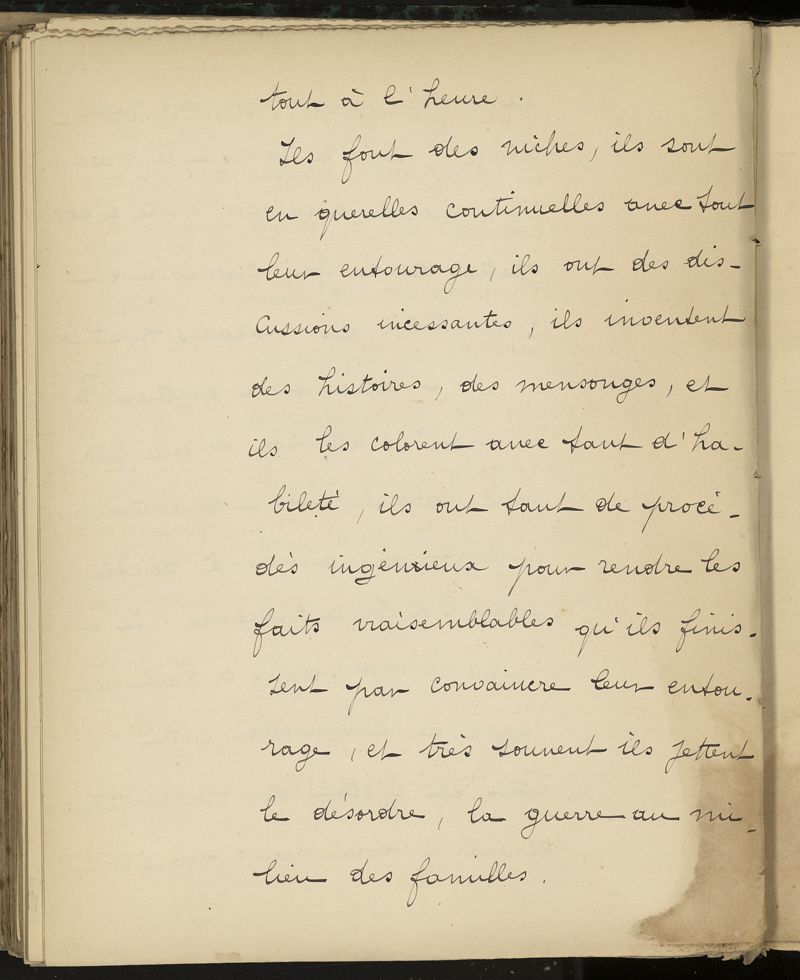 tout à l'heure.
Ils font des niches, ils sont
en querelles continuelles avec tout
leur entourage, ils ont des dis-
cussions incessantes, ils inventent
des histoires, des mensonges, et
ils les colorent avec tant d'ha-
bileté, ils ont tant de procé-
dés ingénieux pour rendre les
faits vraisemblables qu'ils finis-
sent par convaincre leur entou-
rage, et très souvent ils jettent
le désordre, la guerre au mi-
lieu des familles.